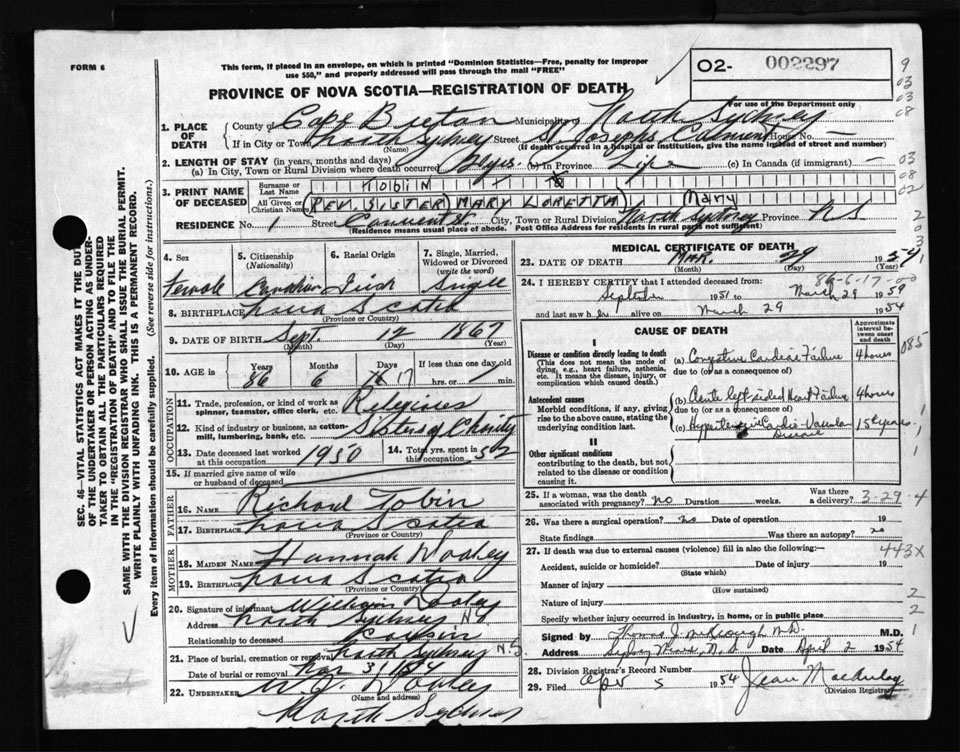 FORM 6
This form, if placed in an envelope, on which is printed "Dominion Statistics—Free, penalty for improper
use $50," and properly addressed will pass through the mail "FREE"
PROVINCE OF NOVA SCOTIA—REGISTRATION OF DEATH
O2- 002297
For use of the Department only
9
03
03
08
03
08
02
2
0
3
1
1. PLACE OF DEATH
County of Cape Breton Municipality of North Sydney
If in City or Town North Sydney Street St. Josephs Convent House No. —
(Name) (If death occurred in a hospital or institution, give the name instead of street and number)
2. LENGTH OF STAY (in years, months and days)
(a) In City, Town or Rural Division where death occurred yrs. (b) In Province Life (c) In Canada (if immigrant) —
3. PRINT NAME OF DECEASED
Surname or Last Name TOBIN
All Given or Christian Names REV. SISTER MARY LORETTA (Mary)
RESIDENCE No. 1 Street Convent St City, Town or Rural Division North Sydney Province N.S.
(Residence means usual place of abode. Post Office Address for residents in rural parts not sufficient)
4. Sex Female
5. Citizenship (Nationality) Canadian
6. Racial Origin Irish
7. Single, Married, Widowed or Divorced (write the word) Single
8. BIRTHPLACE Nova Scotia
(Province or Country)
9. DATE OF BIRTH Sept. 12 1867
(Month) (Day) (Year)
10. AGE in Years 86 Months 6 Days 17 If less than one day old hrs. or min.
OCCUPATION
11. Trade, profession, or kind of work as spinner, teamster, office clerk, etc. Religious
12. Kind of industry or business, as cotton-mill, lumbering, bank, etc. Sisters of Charity
13. Date deceased last worked at this occupation 1950
14. Total yrs. spent in this occupation 52
15. If married give name of wife or husband of deceased
FATHER
16. NAME Richard Tobin
17. BIRTHPLACE Nova Scotia
(Province or Country)
MOTHER
18. MAIDEN NAME Hannah Dooley
19. BIRTHPLACE Nova Scotia
(Province or Country)
20. Signature of informant William Dooley
Address North Sydney NS
Relationship to deceased Cousin
21. Place of burial, cremation or removal North Sydney N.S.
Date of burial or removal Mar 31/54
22. UNDERTAKER Dooley
(Name and address)
North Sydney
MEDICAL CERTIFICATE OF DEATH
23. DATE OF DEATH Mar. 29 1954
(Month) (Day) (Year)
86-6-17
24. I HEREBY CERTIFY that I attended deceased from:
September 1951 to March 29 1954
and last saw her alive on March 29 1954
CAUSE OF DEATH
Approximate interval between onset and death
I
Disease or condition directly leading to death
(This does not mean the mode of dying, e.g., heart failure, asthenia, etc. It means the disease, injury, or complication which caused death.)
(a) Congestive Cardiac Failure 4 hours
due to (or as a consequence of)
Antecedent causes
Morbid conditions, if any, giving rise to the above cause, stating the underlying condition last.
(b) Acute left sided Heart Failure 4 hours
due to (or as a consequence of)
(c) Hypertensive Cardio-Vascular Disease 15 years
II
Other significant conditions
contributing to the death, but not related to the disease or condition causing it.
085
1
1
1
25. If a woman, was the death associated with pregnancy? no Duration weeks. Was there a delivery?
3-29-4
26. Was there a surgical operation? no Date of operation 19
State findings Was there an autopsy? no
27. If death was due to external causes (violence) fill in also the following:—
443X
Accident, suicide or homicide? Date of injury 19
(State which)
Manner of injury
(How sustained)
Nature of injury
Specify whether injury occurred in industry, in home, or in public place
2
2
1
Signed by Thomas J. McKeough M.D. M.D.
Address Sydney Mines, N.S. Date April 2 1954
28. Division Registrar's Record Number
29. Filed Apr 5 1954 Jean
(Division Registrar)
SEC. 46—VITAL STATISTICS ACT MAKES IT THE DUTY
OF THE UNDERTAKER OR PERSON ACTING AS UNDER-
TAKER TO OBTAIN ALL THE PARTICULARS REQUIRED
IN THE "REGISTRATION OF DEATH" AND TO FILE THE
SAME WITH THE DIVISION REGISTRAR WHO SHALL ISSUE THE BURIAL PERMIT.
WRITE PLAINLY WITH UNFADING INK. THIS IS A PERMANENT RECORD.
Every item of information should be carefully supplied. (See reverse side for instructions.)